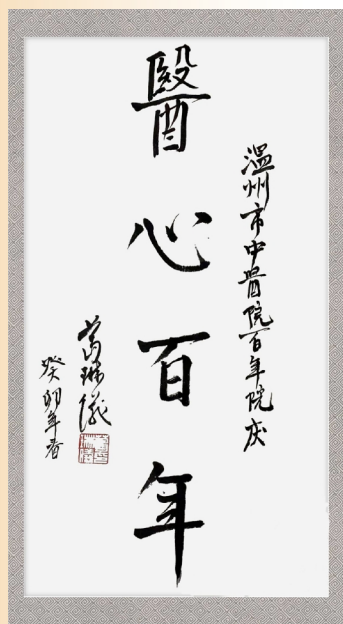 温州市中醫院百年院庆
醫心百年
葛琳儀
癸卯年春